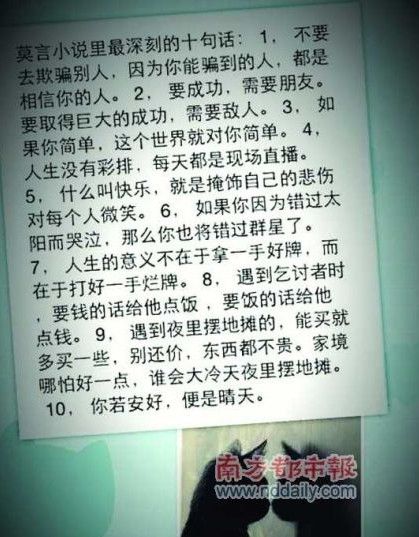 莫言小说里最深刻的十句话：1，不要
去欺骗别人，因为你能骗到的人，都是
相信你的人。2，要成功，需要朋友。
要取得巨大的成功，需要敌人。3，如
果你简单，这个世界就对你简单。4，
人生没有彩排，每天都是现场直播。
5，什么叫快乐，就是掩饰自己的悲伤
对每个人微笑。6，如果你因为错过太
阳而哭泣，那么你也将错过群星了。
7，人生的意义不在于拿一手好牌，而
在于打好一手烂牌。8，遇到乞讨者时
，要钱的话给他点饭，要饭的话给他
点钱。9，遇到夜里摆地摊的，能买就
多买一些，别还价，东西都不贵。家境
哪怕好一点，谁会大冷天夜里摆地摊。
10，你若安好，便是晴天。
南方都市報
www.nddaily.com